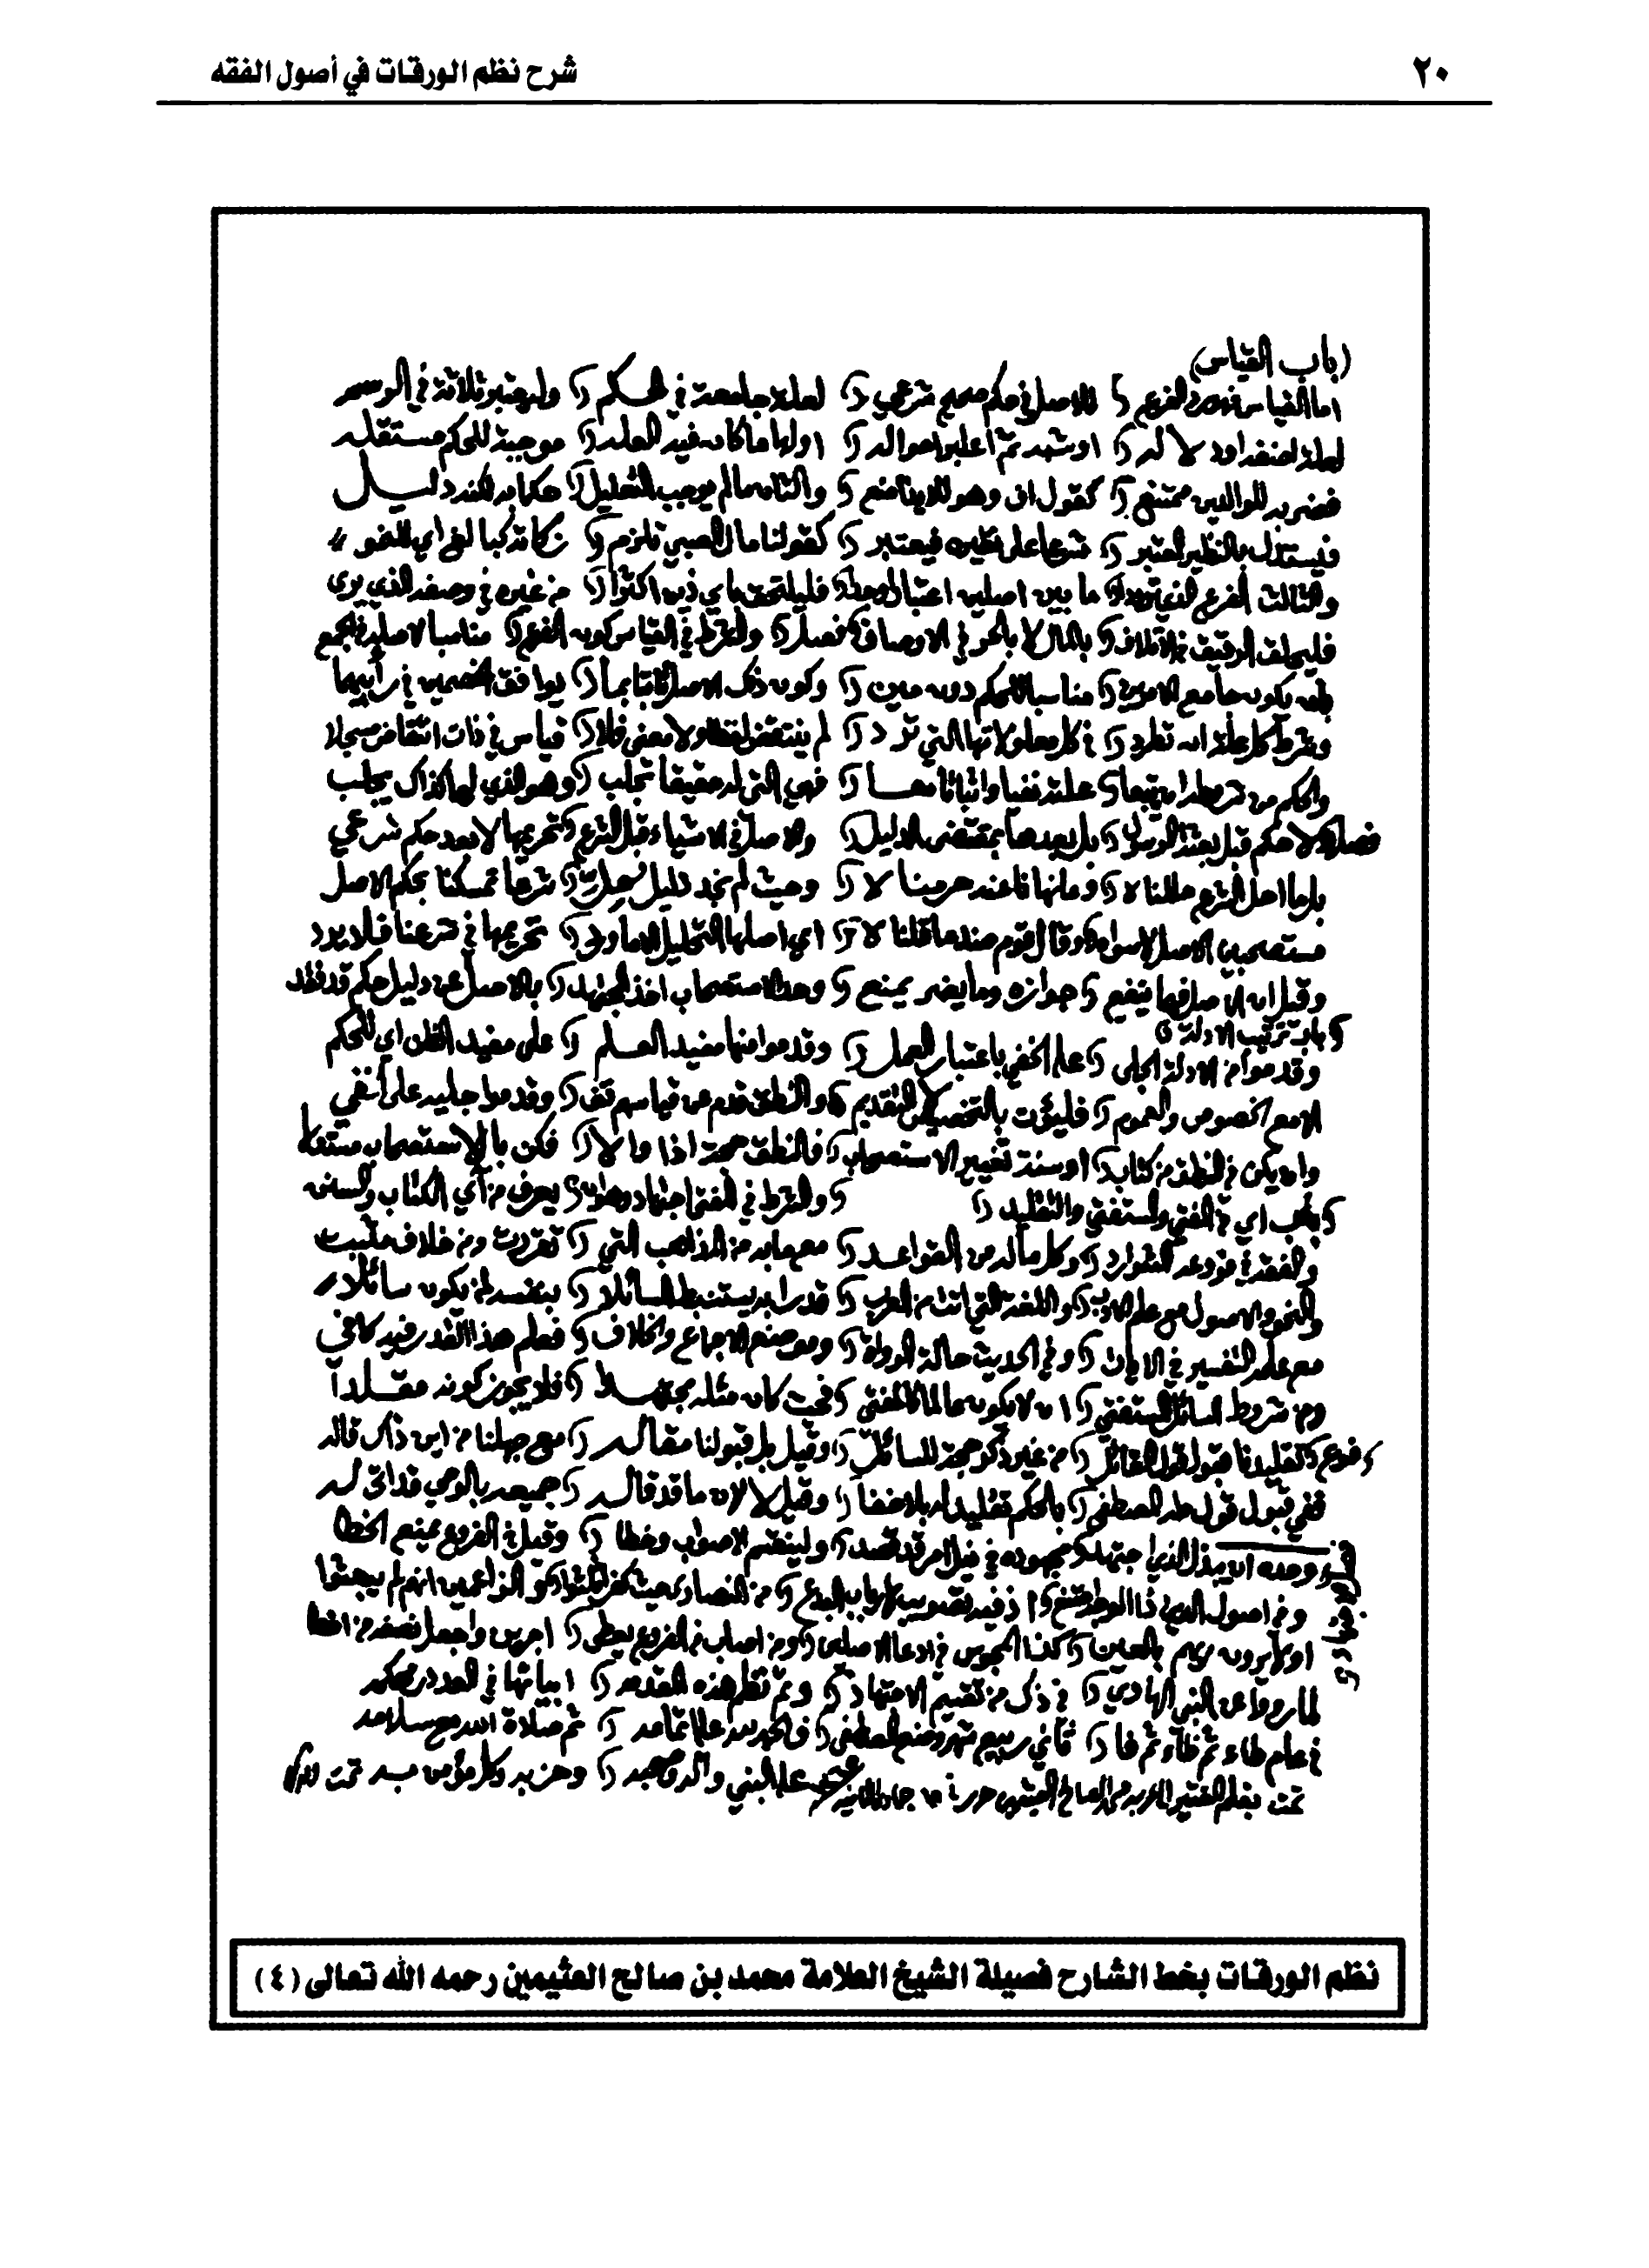 ٢٠
شرح نظم الورقات في أصول الفقه
(باب القياس)
اما القياس فهو رد الفرع للاصل في حكم صحيح شرعي لعلة جامعة في الحكم وليعتبر ثلاثة في الرسم
لعلة اضفه او دلاله او شبه ثم اعتبر احواله اولها ما كان فيه العله موجبة للحكم مستقله
فضربه للوالدين ممتنع كقول اف وهو للايذا منع والثان ما لم يوجب التعليل حكما به لكنه دليل
فيستدل بالنظير المعتبر شرعا على نظيره فيعتبر كقولنا مال الصبي تلزم زكاته كبالغ اي للنمو
والثالث الفرع الذي ترددا ما بين اصلين اعتبارا وجدا فليلتحق باي ذين اكثرا من غيره في وصفه الذي يرى
فليلحق الرقيق في الاتلاف بالمال لا بالحر في الاوصاف فصل والشرط في القياس كون الفرع مناسبا لاصله في الجمع
بان يكون جامع الامرين مناسبا للحكم دون مين وكون ذاك الاصل ثابتا بما يوافق الخصمين في رأييهما
وشرط كل علة ان تطرد في كل معلولاتها التي ترد لم ينتقض لفظا ولا معنى فلا قياس في ذات انتقاض مسجلا
والحكم من شروطه ان يتبعا علته نفيا واثباتا معا فهي التي له حقيقا تجلب وهو الذي لها كذاك يجلب
فصل لا حكم قبل بعثة الرسول بل بعدها بمقتضى الدليل والاصل في الاشياء قبل الشرع تحريمها لا بعد حكم شرعي
بل ما احل الشرع حللناه وما نهانا عنه حرمناه وحيث لم نجد دليل حل شرعا تمسكنا بحكم الاصل
مستصحبين الاصل لا سواه وقال قوم ضد ما قلناه اي اصلها التحليل الا ما ورد تحريمها في شرعنا فلا يرد
وقيل ان الاصل فيما ينفع جوازه وما يضر يمنع وحد الاستصحاب اخذ المجتهد بالاصل عن دليل حكم قد فقد
باب ترتيب الادلة
وقدموا من الادلة الجلي على الخفي باعتبار العمل وقدموا منها مفيد العلم على مفيد الظن اي للحكم
الا مع الخصوص والعموم فليؤت بالتخصيص لا التقديم والنطق قدم عن قياسهم تف وقدموا جليه على الخفي
وان يكن في النطق من كتاب او سنة تغيير الاستصحاب فالنطق حجة اذا والا فكن بالاستصحاب مستدلا
باب اي في المفتي والمستفتي والتقليد والشرط في المفتي اجتهاد وهو ان يعرف من آي الكتاب والسنن
والفقه في فروعه الشوارد وكل ماله من القواعد مع ما به من المذاهب التي تقررت ومن خلاف مثبت
والنحو والاصول مع علم الادب واللغة التي اتت من العرب قدرا به يستنبط المسائلا بنفسه لمن يكون سائلا
مع علمه التفسير في الايات وفي الحديث حالة الرواة وموضع الاجماع والخلاف فعلم هذا القدر فيه كافي
ومن شروط السائل المستفتي ان لا يكون عالما كالمفتي فحيث كان مثله مجتهدا فلا يجوز كونه مقلدا
فرع تقليدنا قبول قول القائل من غير ذكر حجة للسائل وقيل بل قبولنا مقاله مع جهلنا من اين ذاك قاله
ففي قبول قول طه المصطفى بالحكم تقليد له بلا خفا وقيل لا لان ما قد قاله جميعه بالوحي قد اتى له
وحده ان يبذل الذي اجتهد مجهوده في نيل امر قد قصد ولينقسم الى صواب وخطا وقيل في الفروع يمنع الخطا
وفي اصول الدين ذا الوجه امتنع اذ فيه تصويب لارباب البدع من النصارى حيث كفرا ثلثوا والزاعمين انهم لم يبعثوا
او لا يرون ربهم بالعين كذا المجوس في ادعا الاصلين ومن اصاب في الفروع يعطى اجرين واجعل نصفه من اخطا
لما رووا عن النبي الهادي في ذاك من تقسيم الاجتهاد وتم نظم هذه المقدمه ابياتها في العد در محكمه
في عام طاء ثم ظاء ثم فا ثاني ربيع شهر وضع المصطفى فالحمد لله على اتمامه ثم صلاة الله مع سلامه
على النبي وآله وصحبه وحزبه وكل مؤمن به تمت
تمت بقلم الفقير الى ربه محمد الصالح العثيمين
نظم الورقات بخط الشارح فضيلة الشيخ العلامة محمد بن صالح العثيمين رحمه الله تعالى (٤)